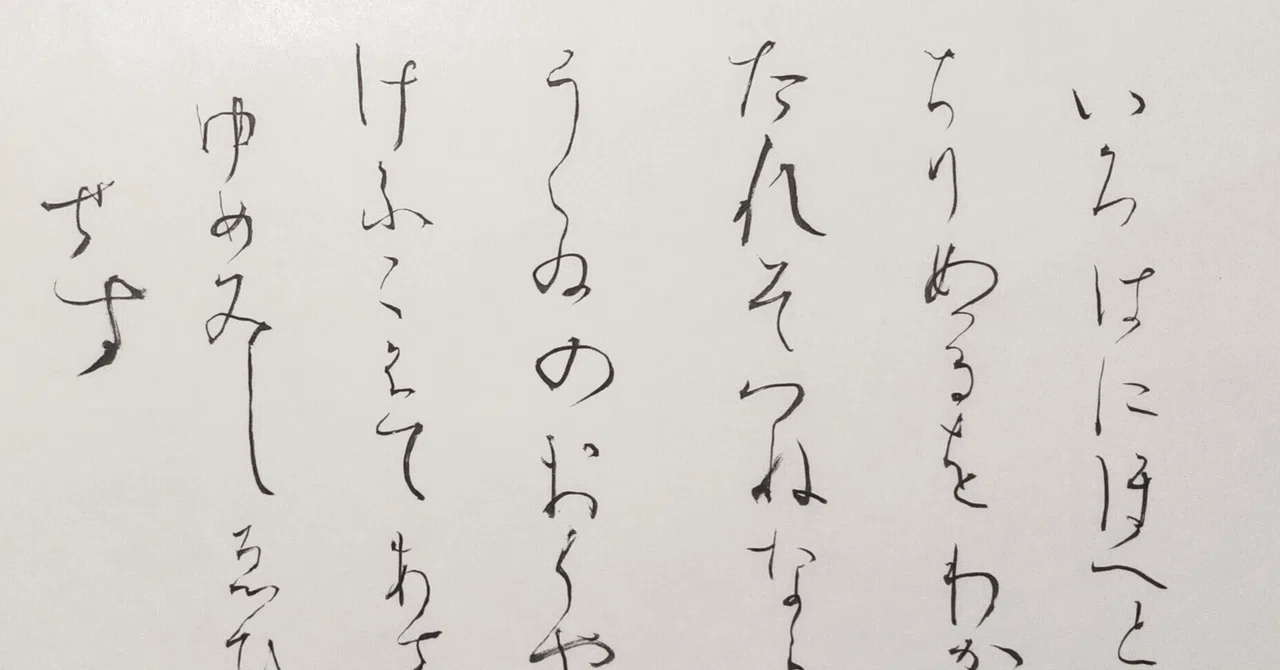 いろはにほへと
ちりぬるをわか
たれそつねなら
うゐのおくや
けふこえてあさ
ゆめみしゑひ
せす